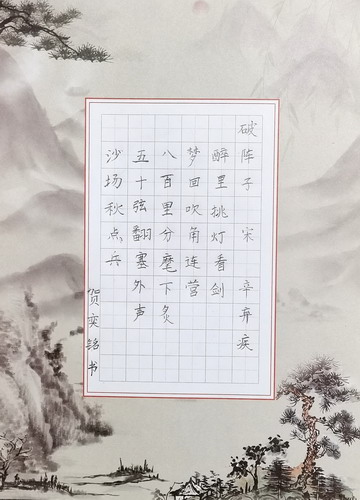 破阵子 宋 辛弃疾
醉里挑灯看剑
梦回吹角连营
八百里分麾下炙
五十弦翻塞外声
沙场秋点兵
贺奕铭书